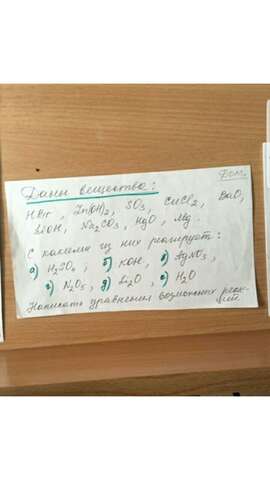 Дом.
Даны вещества:
HBr, Zn(OH)2, SO3, CuCl2, BaO,
LiOH, Na2CO3, HgO, Mg.
С какими из них реагирует:
а) H2SO4, б) KOH, в) AgNO3,
г) N2O5, д) Li2O, е) H2O
Написать уравнения возможных реак-
ций.